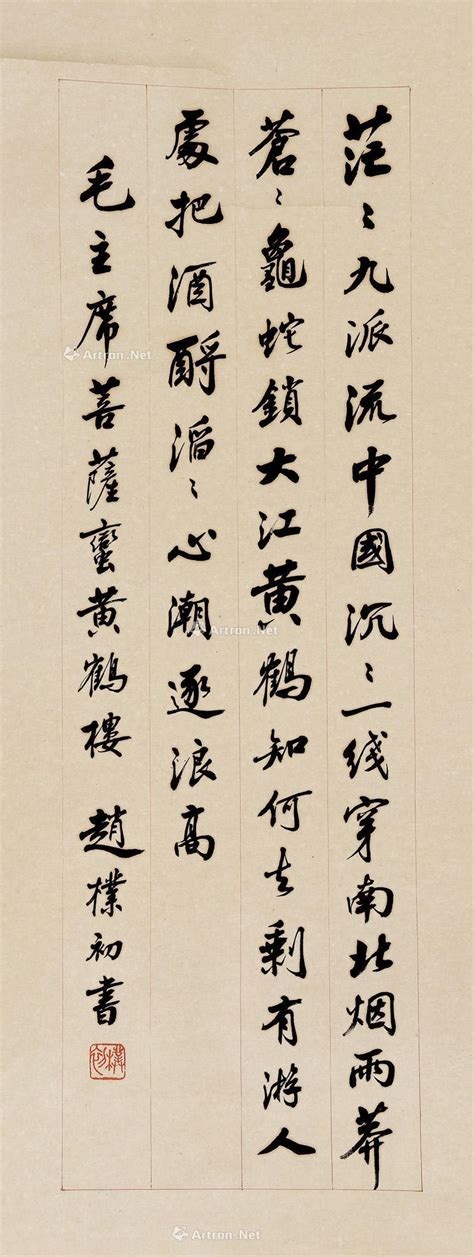 茫〻九派流中國沉〻一线穿南北烟雨莽
蒼〻龜蛇鎖大江黄鶴知何去剩有游人
處把酒酹滔〻心潮逐浪高
毛主席菩薩蠻黄鶴樓 趙樸初書
樸初
Artron.Net
Artron.Net
Artron.Net